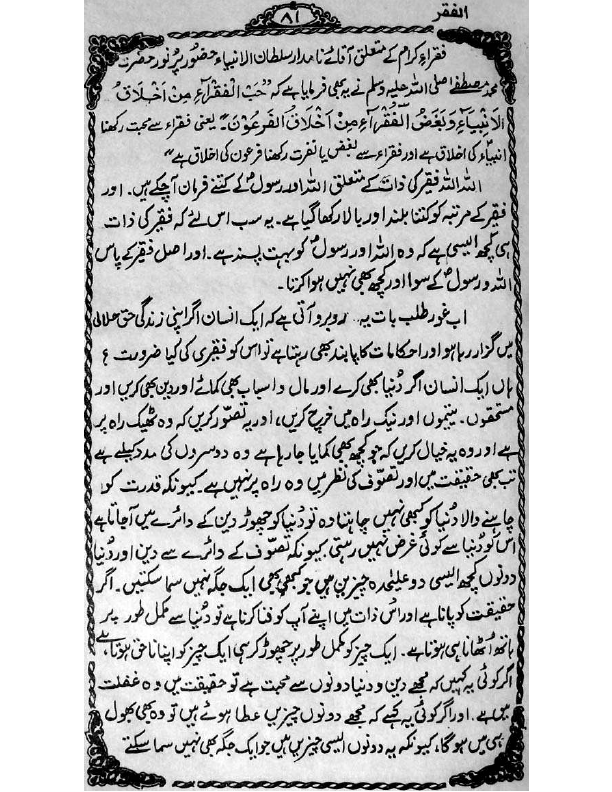 الفقر
۸۱
فقراءِ کرام کے متعلق آقائے نامدار سلطان الانبیاء حضور پُر نور حضرت
محمد مصطفےٰ اصلی اللہ علیہ وسلم نے یہ بھی فرمایا ہے کہ ”حُبُّ الْفُقَرَآءِ مِنْ اَخْلَاقُ
الْاَنْبِیَآءِ وَ بَغَضُ الْفُقَرَآءِ مِنْ اَخْلَاقُ الْفِرْعَوْن“ یعنی فقراء سے محبت رکھنا
انبیاؑء کی اخلاق ہے اور فقراء سے بغض یا نفرت رکھنا فرعون کی اخلاق ہے“
اللہ اللہ فقیر کی ذات کے متعلق اللہ اور رسولؐ کے کتنے فرمان آچکے ہیں۔ اور
فقیر کے مرتبہ کو کتنا بلند اور بالا رکھا گیا ہے۔ یہ سب اس لئے کہ فقیر کی ذات
ہی کچھ ایسی ہے کہ وہ اللہ اور رسولؐ کو بہت پسند ہے۔ اور اصل فقیر کے پاس
اللہ و رسولؐ کے سوا اور کچھ بھی نہیں ہوا کرتا۔
اب غور طلب بات یہ۔ روبرو آتی ہے کہ ایک انسان اگر اپنی زندگی حق حلالی
میں گزار رہا ہو اور احکامات کا پابند بھی رہتا ہے تو اس کو فقیری کی کیا ضرورت ؟
ہاں ایک انسان اگر دُنیا بھی کرے اور مال و اسباب بھی کمائے اور دین بھی کریں اور
مستحقوں۔ یتیموں اور نیک راہ میں خرچ کریں، اور یہ تصوّر کریں کہ وہ ٹھیک راہ پر
ہے اور وہ یہ خیال کریں کہ جو کچھ بھی کمایا جا رہا ہے وہ دوسروں کی مدد کیلئے ہے
تب بھی حقیقت میں اور تصوّف کی نظر میں وہ راہ پر نہیں ہے۔ کیونکہ قدرت کو
چاہنے والا دُنیا کو کبھی نہیں چاہتا وہ تو دُنیا کو چھوڑ دین کے دائرے میں آجاتا ہے
اس کو دُنیا سے کوئی غرض نہیں رہتی کیونکہ تصوّف کے دائرے سے دین اور دُنیا
دونوں کچھ ایسی دو علیٰحدہ چیزیں ہیں جو کبھی بھی ایک جگہ نہیں سما سکتیں۔ اگر
حقیقت کو پانا ہے اور اُس ذات میں اپنے آپ کو فنا کرنا ہے تو دُنیا سے مکمل طور پر
ہاتھ اُٹھانا ہی ہوتا ہے۔ ایک چیز کو مکمل طور پر چھوڑ کر ہی ایک چیز کو اپنانا حق ہوتا ہے
اگر کوئی یہ کہیں کہ مجھے دین و دنیا دونوں سے محبت ہے تو حقیقت میں وہ غفلت
میں ہے۔ اور اگر کوئی یہ کہے کہ مجھے دونوں چیزیں عطا ہوئے ہیں تو وہ بھی بھول
ہی میں ہوگا، کیونکہ یہ دونوں ایسی چیزیں ہیں جو ایک جگہ بھی نہیں سما سکتے